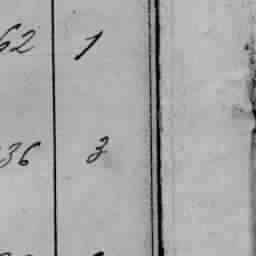 62 1
36 3